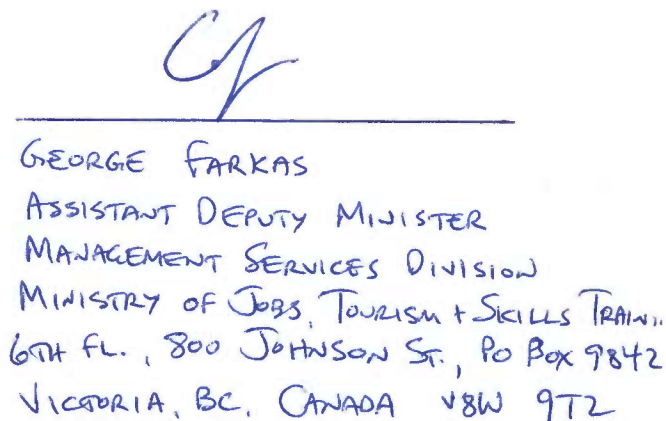 GEORGE FARKAS
ASSISTANT DEPUTY MINISTER
MANAGEMENT SERVICES DIVISION
MINISTRY OF JOBS, TOURISM + SKILLS TRAIN..
6TH FL., 800 JOHNSON ST., PO BOX 9842
VICTORIA, BC, CANADA V8W 9T2